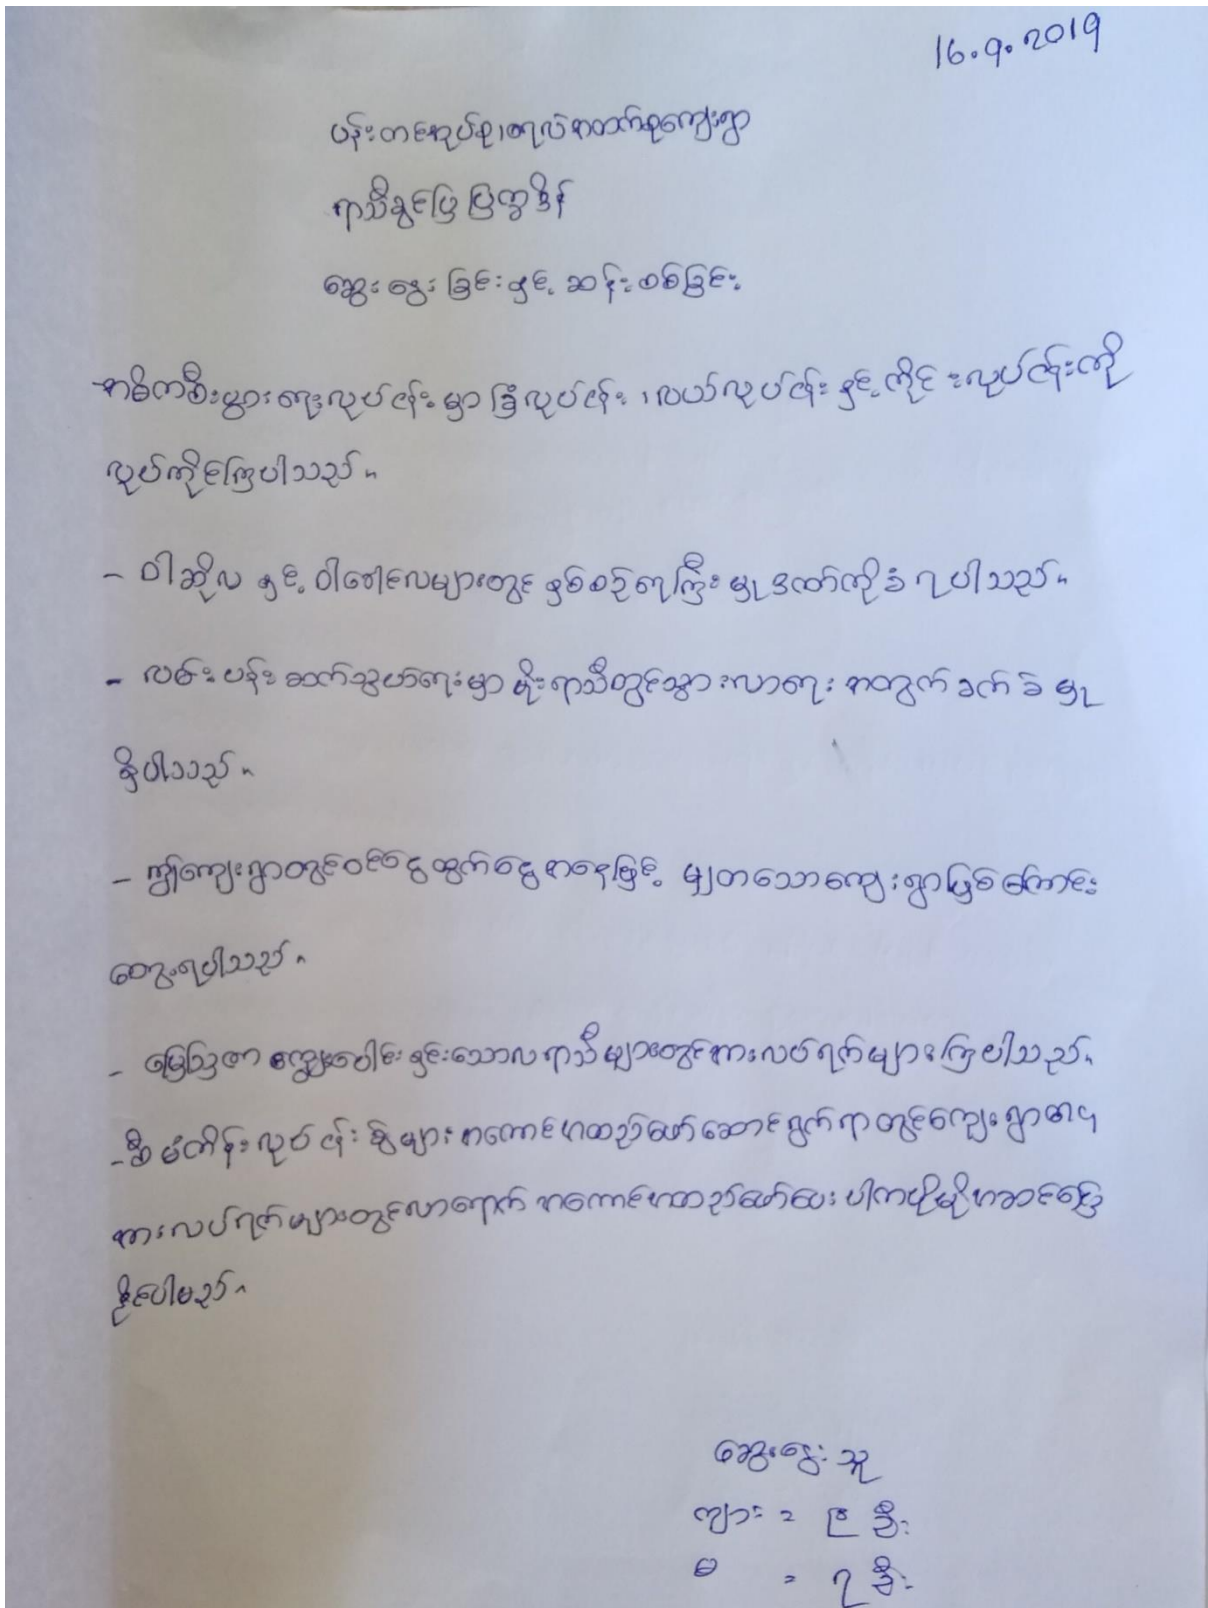 16.9.2019
ပန်းတင်အုပ်စု၊ အလယ်ကျေးရွာ
ရာသီခွင်ပြ ပြက္ခဒိန်
ဆွေးနွေးခြင်းနှင့် ဆန်းစစ်ခြင်း
အဓိကစီးပွားရေးလုပ်ငန်းမှာ ခြံလုပ်ငန်း၊ လယ်လုပ်ငန်း နှင့် ကိုင်းလုပ်ငန်းကို
လုပ်ကိုင်ကြပါသည်။
- ဝါဆိုလ နှင့် ဝါခေါင်လများတွင် နှစ်စဉ်ရေကြီးမှုဒဏ်ကိုခံရပါသည်။
- လမ်းပန်းဆက်သွယ်ရေးမှာ မိုးရာသီတွင်သွားလာရေးအတွက်ခက်ခဲမှု
ရှိပါသည်။
- ဤကျေးရွာတွင်ဝင်ငွေထွက်ငွေအနေဖြင့် မျှတသောကျေးရွာဖြစ်ကြောင်း
တွေ့ရပါသည်။
- မြေဩဇာကျွေးပေါင်းရှင်းသောလရာသီများတွင်အားလပ်ရက်များကြပါသည်။
- စီမံကိန်းလုပ်ငန်းစဉ်များအကောင်အထည်ဖော်ဆောင်ရွက်ရာတွင်ကျေးရွာ၏
အားလပ်ရက်များတွင်လာရောက်အကောင်အထည်ဖော်ပေးပါကပိုမိုအဆင်ပြေ
နိုင်ပါမည်။
ဆွေးနွေးသူ
ကျား = ၉ ဦး
မ = ၇ ဦး